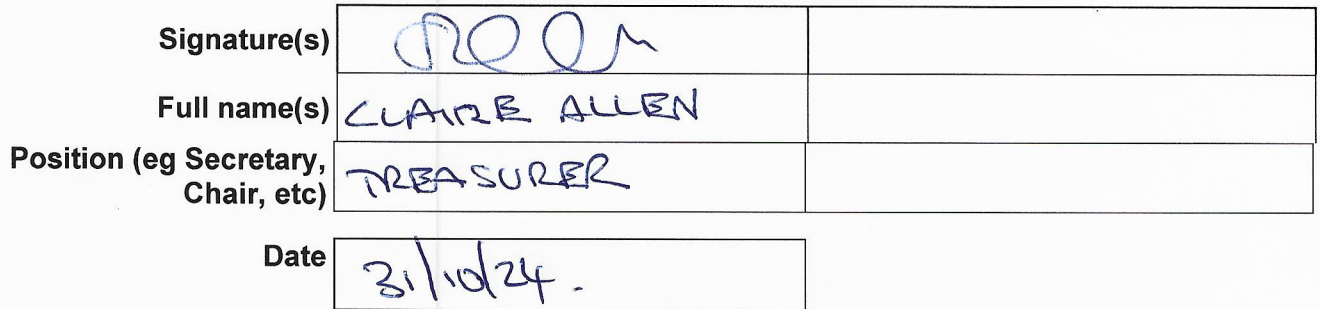 Signature(s)
Full name(s) CLAIRE ALLEN
Position (eg Secretary,
Chair, etc) TREASURER
Date 31/10/24.